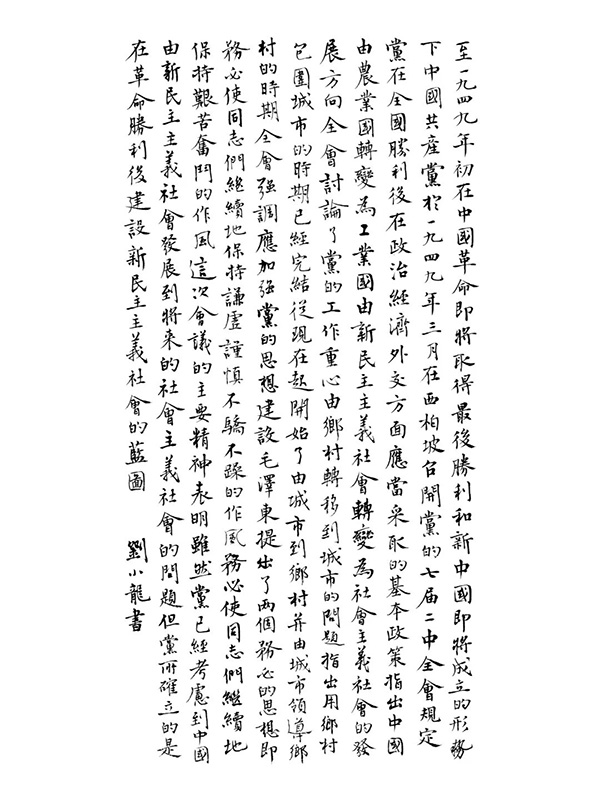 至一九四九年初在中國革命即將取得最後勝利和新中國即將成立的形勢
下中國共産黨於一九四九年三月在西柏坡召開黨的七届二中全會規定
黨在全國勝利後在政治經濟外交方面應當采取的基本政策指出中國
由農業國轉變為工業國由新民主主義社會轉變為社會主義社會的發
展方向全會討論了黨的工作重心由鄉村轉移到城市的問題指出用鄉村
包圍城市的時期已經完結從現在起開始了由城市到鄉村并由城市領導鄉
村的時期全會强調應加强黨的思想建設毛澤東提出了兩個務必的思想即
務必使同志們繼續地保持謙虚謹慎不驕不躁的作風務必使同志們繼續地
保持艱苦奮鬥的作風這次會議的主要精神表明雖然黨已經考慮到中國
由新民主主義社會發展到將来的社會主義社會的問題但黨所確立的是
在革命勝利後建設新民主主義社會的藍圖 劉小龍書